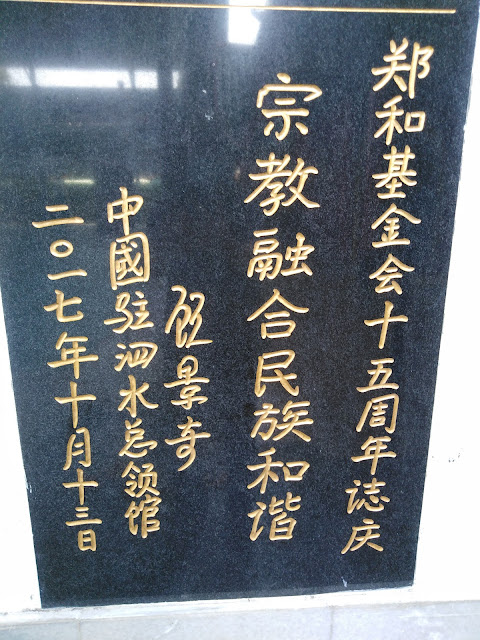 郑和基金会十五周年誌庆
宗教融合民族和谐
顾景奇
中國驻泗水总领馆
二〇一七年十月十三日